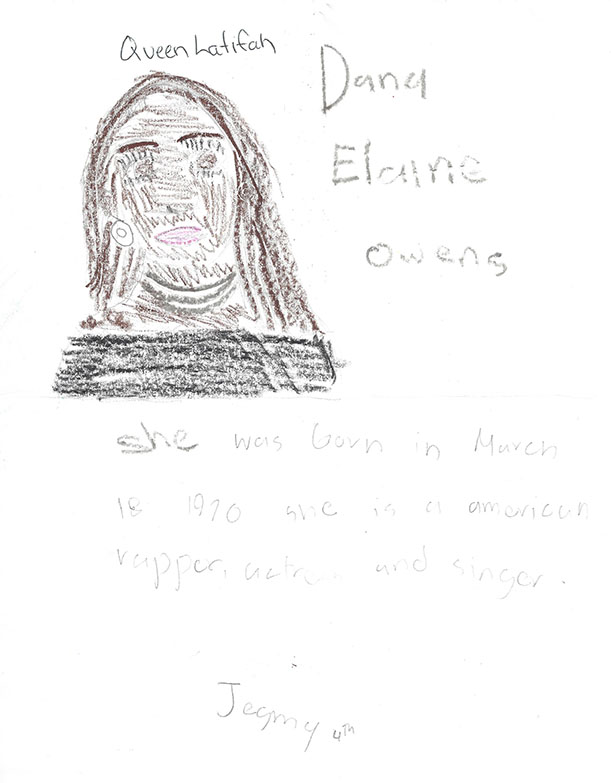 Queen Latifah
Dana
Elaine
owens
she was born in March
18 1970 she is a american
rapper, and singer.
4TH